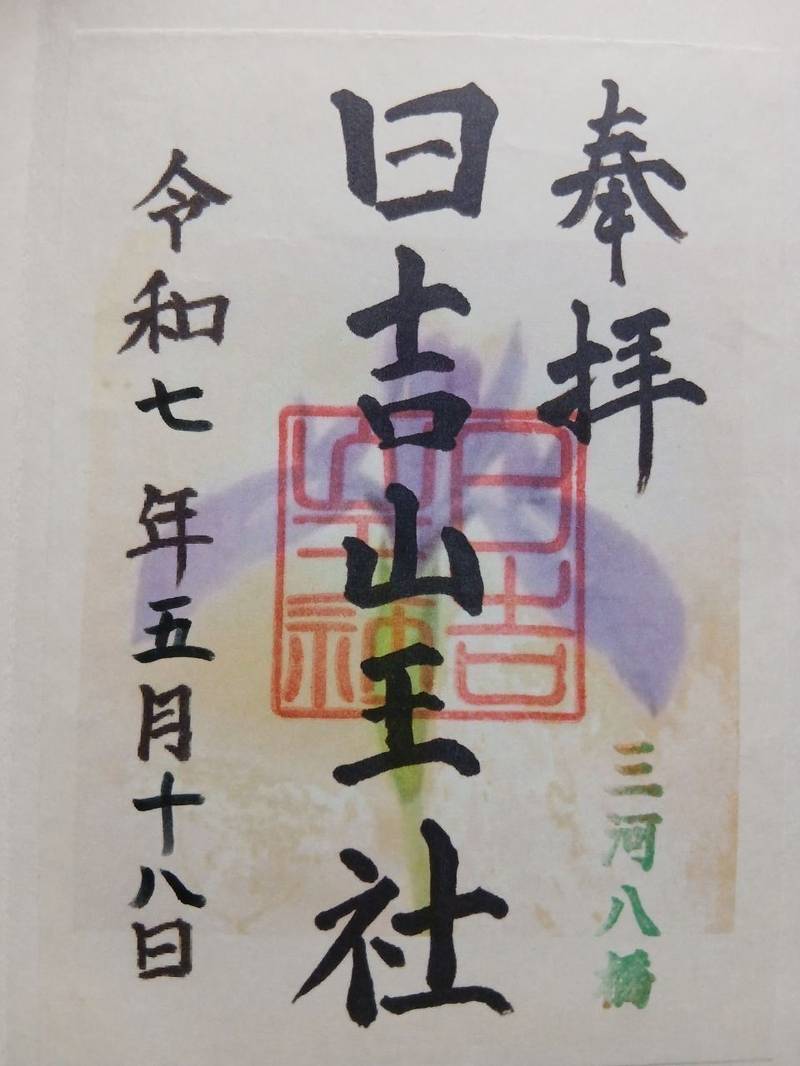 奉拝
三河八橋
日吉山王社
日吉山王社
令和七年五月十八日